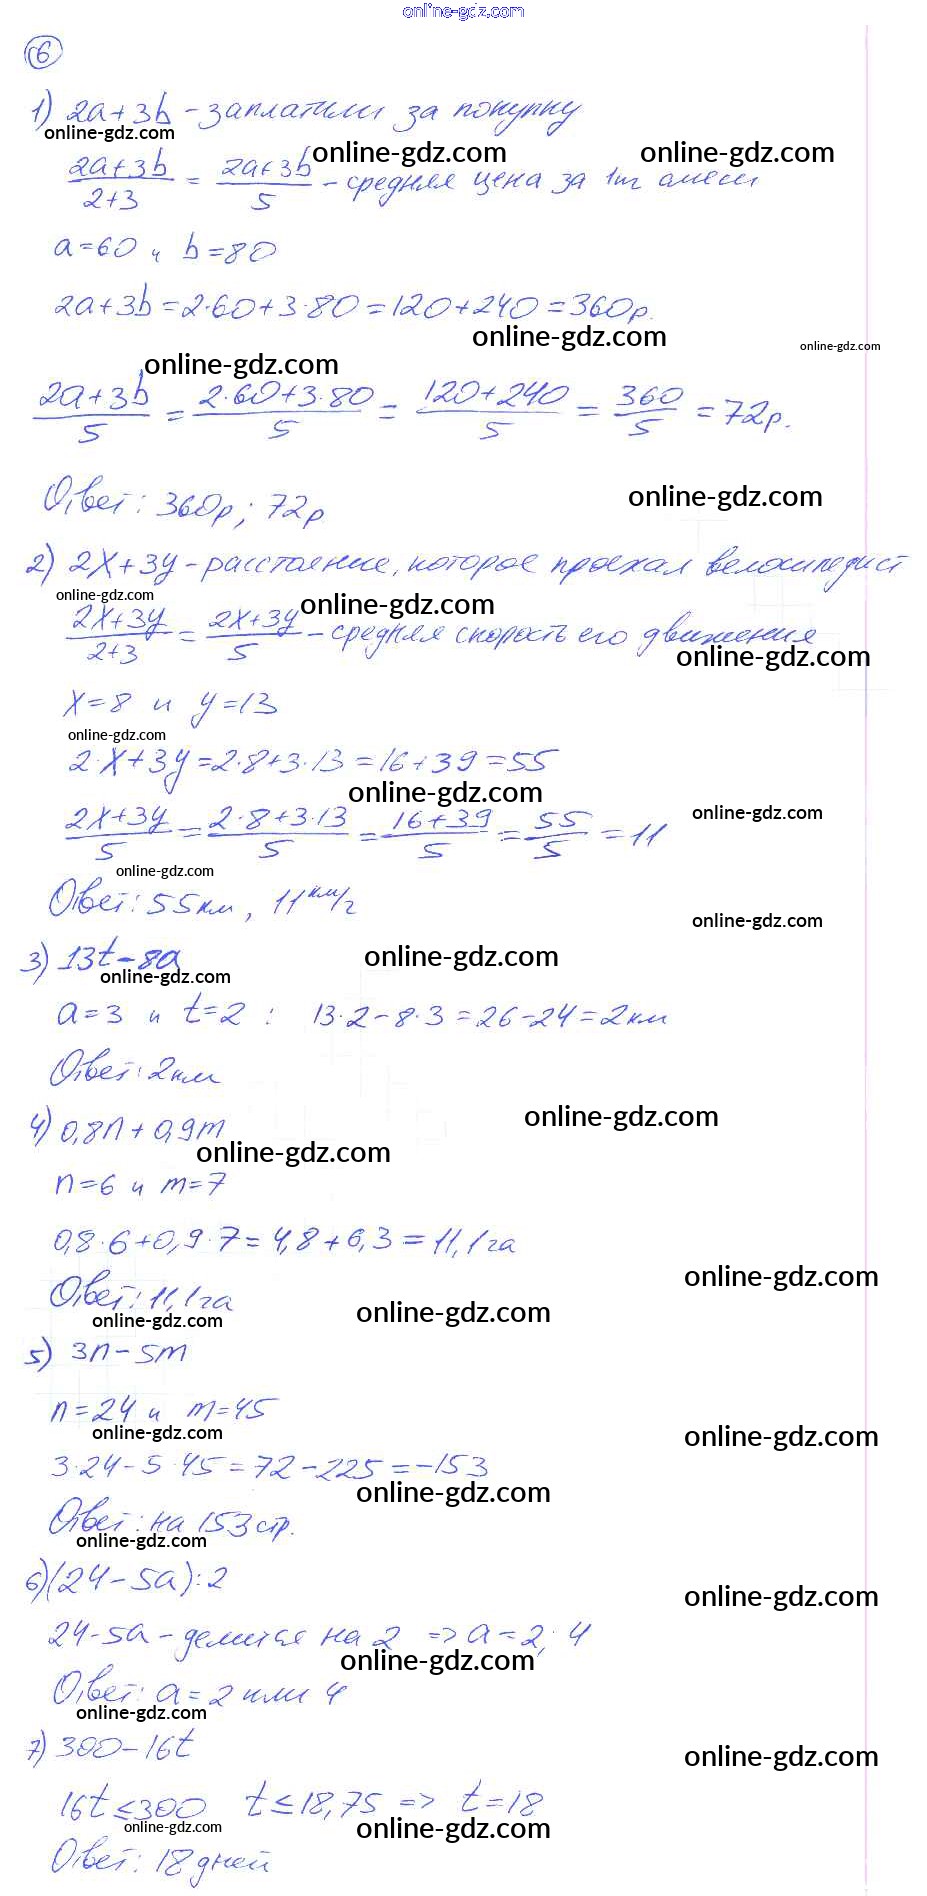 online-gdz.com
6
1) 2a+3b - заплатили за покупку
online-gdz.com
online-gdz.com online-gdz.com
(2a+3b)/(2+3) = (2a+3b)/5 - средняя цена за 1кг смеси
a=60 и b=80
2a+3b=2·60+3·80=120+240=360р.
online-gdz.com online-gdz.com
online-gdz.com
(2a+3b)/5 = (2·60+3·80)/5 = (120+240)/5 = 360/5 = 72р.
Ответ: 360р; 72р
online-gdz.com
2) 2x+3y - расстояние, которое проехал велосипедист
online-gdz.com online-gdz.com
(2x+3y)/(2+3) = (2x+3y)/5 - средняя скорость его движения
online-gdz.com
x=8 и y=13
online-gdz.com
2·x+3y=2·8+3·13=16+39=55
online-gdz.com online-gdz.com
(2x+3y)/5 = (2·8+3·13)/5 = (16+39)/5 = 55/5 = 11
online-gdz.com
Ответ: 55км, 11км/г
online-gdz.com
3) 13t-8a
online-gdz.com online-gdz.com
a=3 и t=2 : 13·2-8·3=26-24=2км
Ответ: 2км
4) 0,8n+0,9m
online-gdz.com online-gdz.com
n=6 и m=7
0,8·6+0,9·7=4,8+6,3=11,1га
online-gdz.com
Ответ: 11,1га
online-gdz.com online-gdz.com
5) 3n-5m
n=24 и m=45
online-gdz.com online-gdz.com
3·24-5·45=72-225=-153
online-gdz.com
Ответ: на 153 стр.
online-gdz.com
6) (24-5a):2
online-gdz.com
24-5a - делится на 2 => a=2; 4
online-gdz.com
Ответ: a=2 или 4
online-gdz.com
7) 300-16t
online-gdz.com
16t≤300 t≤18,75 => t=18
online-gdz.com online-gdz.com
Ответ: 18 дней